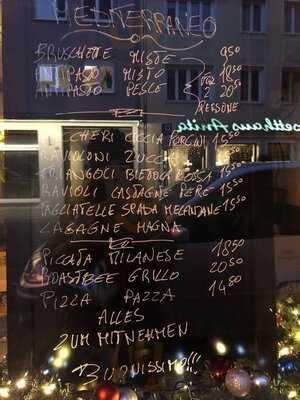 MEDITERRANEO
BRUSCHETTE MISTE 950
ANTIPASTO MISTO 1850
ANTIPASTO PESCE 2050
PER
2
PERSONE
setthaus Anita
CHERI CCCIA PORCINI 1550
RAVIOLONI ZUCCHE 1550
TRIANGOLI BIETOLA ROSSA 1550
RAVIOLI CASTAGNE PERE 1550
TAGLIATELLE SPADA MELANZANE 1550
LASAGNE MAGNA
PICCATA MILANESE 1850
ROASTBEE GRILLO 2050
PIZZA PAZZA 1480
ALLES
ZUM MITNEHMEN
BUONISSIMO!!!